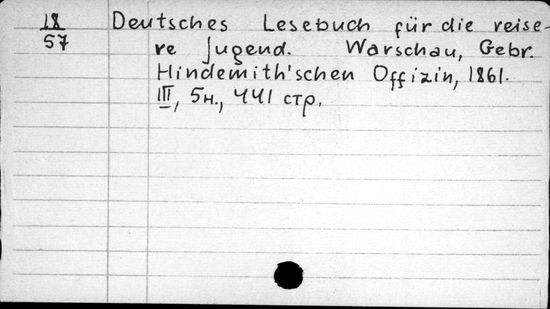 18
57
Deutsches Lesebuch für die reise-
re Jugend. Warschau, Gebr.
Hindemith'schen Offizin, 1861.
III, 5н., 441 стр.